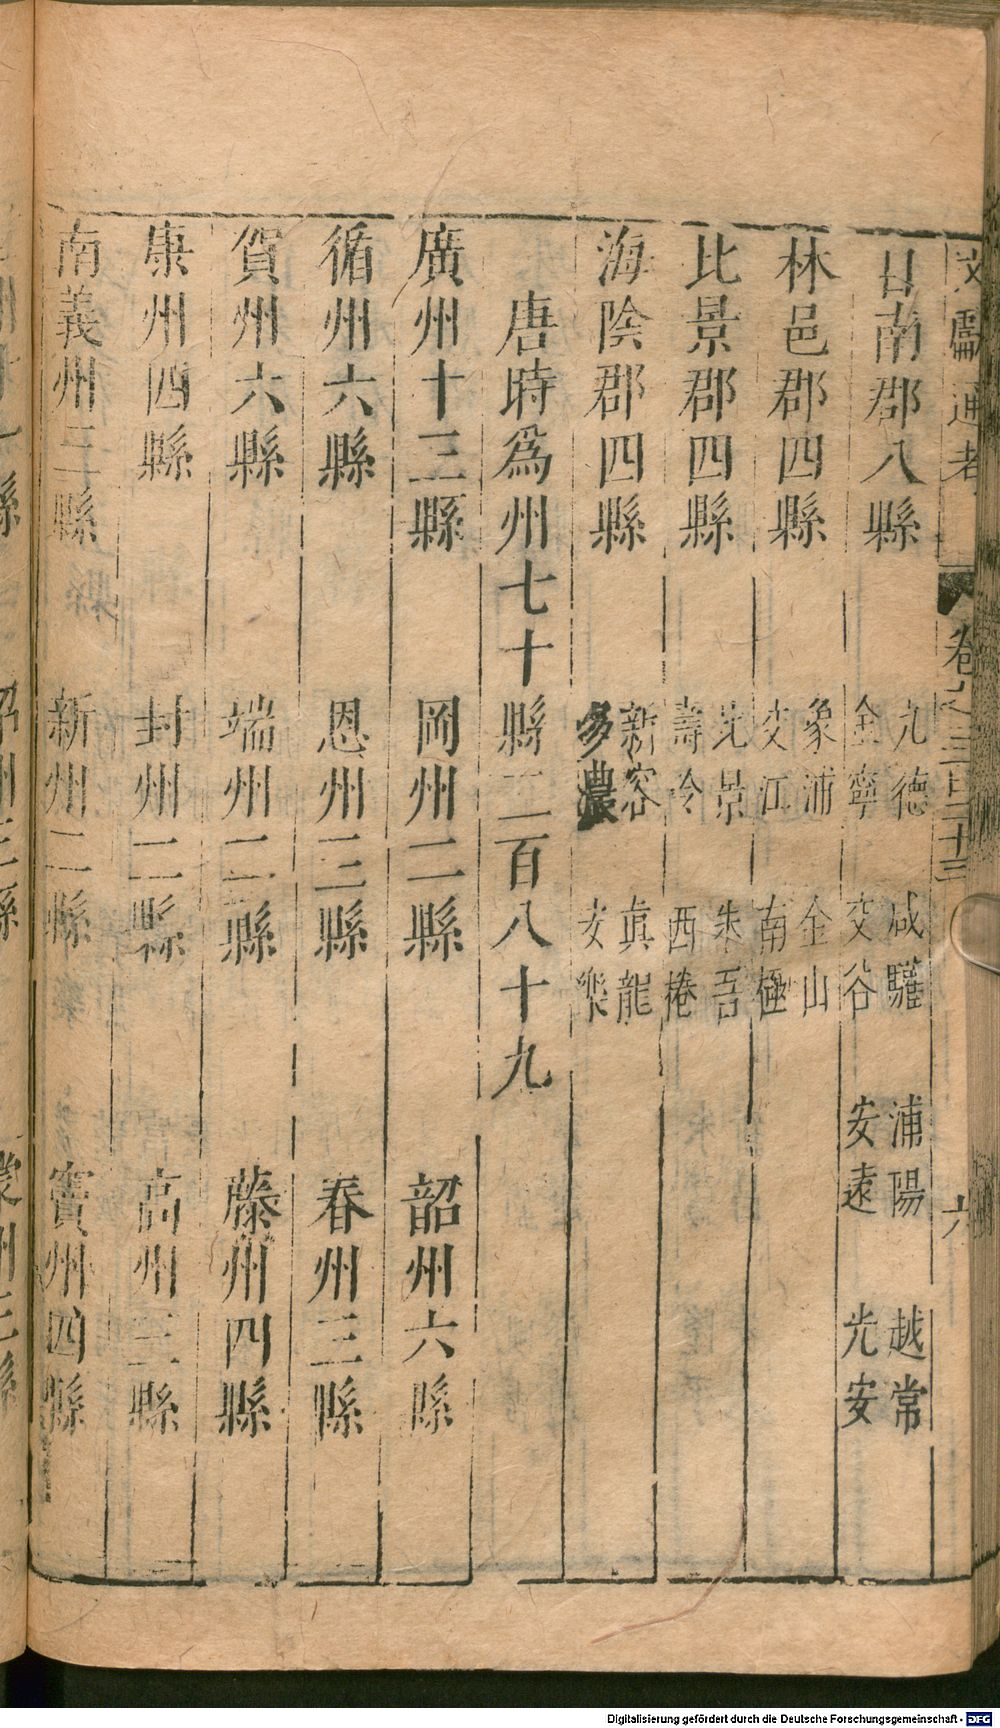 文獻通考 卷之三百二十三 六
日南郡八縣 九德 咸驩 浦陽 越常
金寧 交谷 安遠 光安
林邑郡四縣 象浦 金山
交江 南極
比景郡四縣 比景 朱吾
壽泠 西捲
海陰郡四縣 新容 眞龍
多濃 安樂
唐時爲州七十縣二百八十九
廣州十三縣 岡州二縣 韶州六縣
循州六縣 恩州三縣 春州三縣
賀州六縣 端州二縣 藤州四縣
康州四縣 封州二縣 高州三縣
南義州三縣 新州二縣 竇州四縣
Digitalisierung gefördert durch die Deutsche Forschungsgemeinschaft - DFG